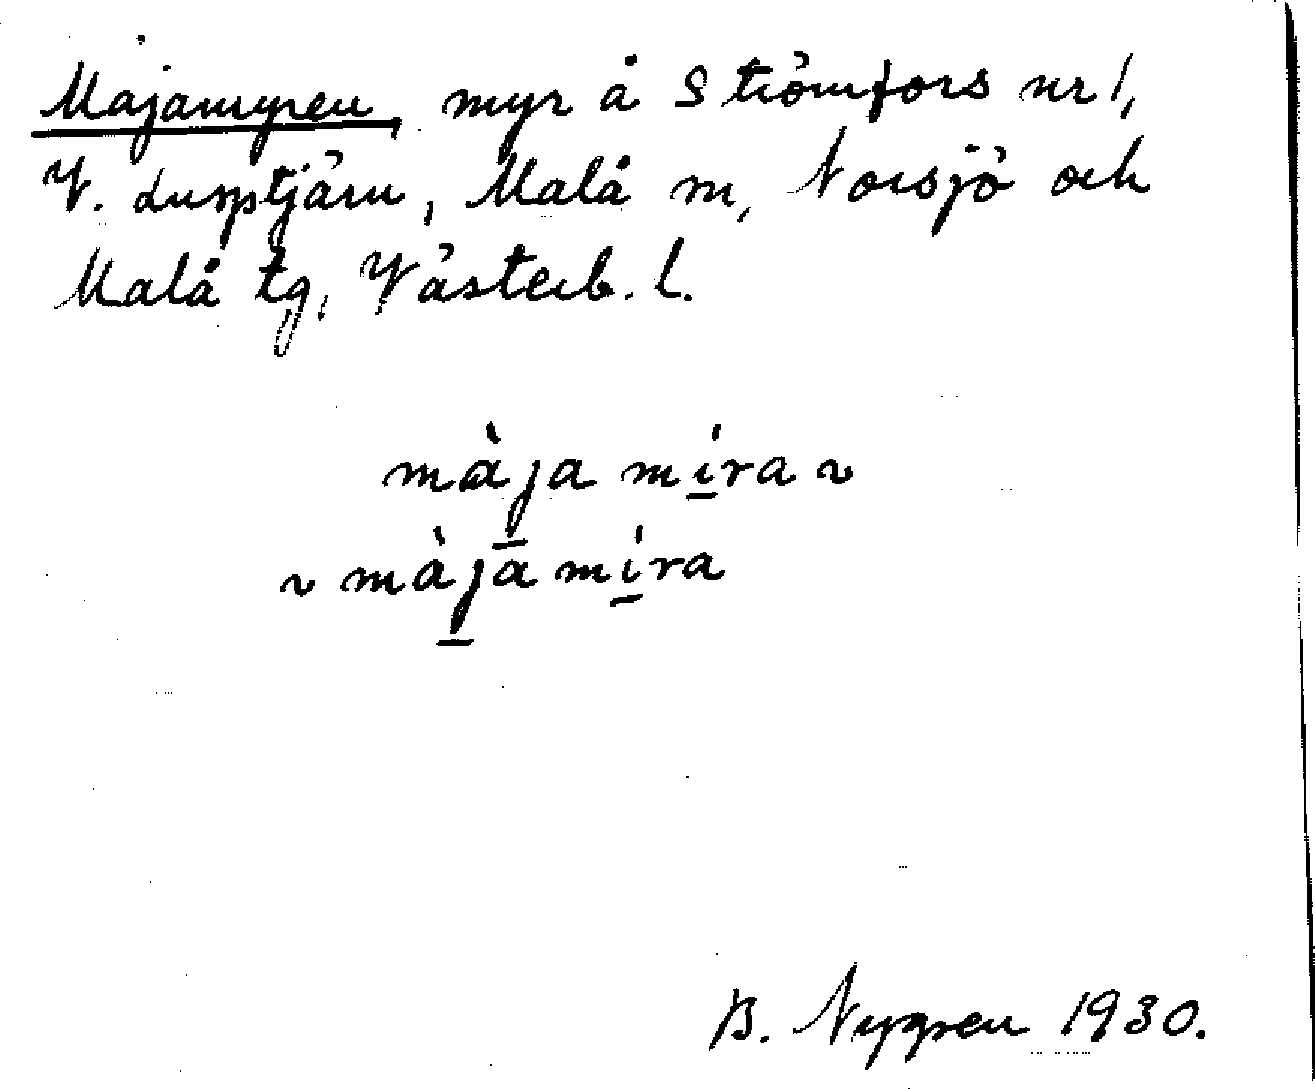 Majamyren, myr å Strömfors nr 1,
V. Lusptjärn, Malå sn, Norsjö och
Malå tg, Västerb. l.
màja míra ~
~ màja míra
B. Nygren 1930.